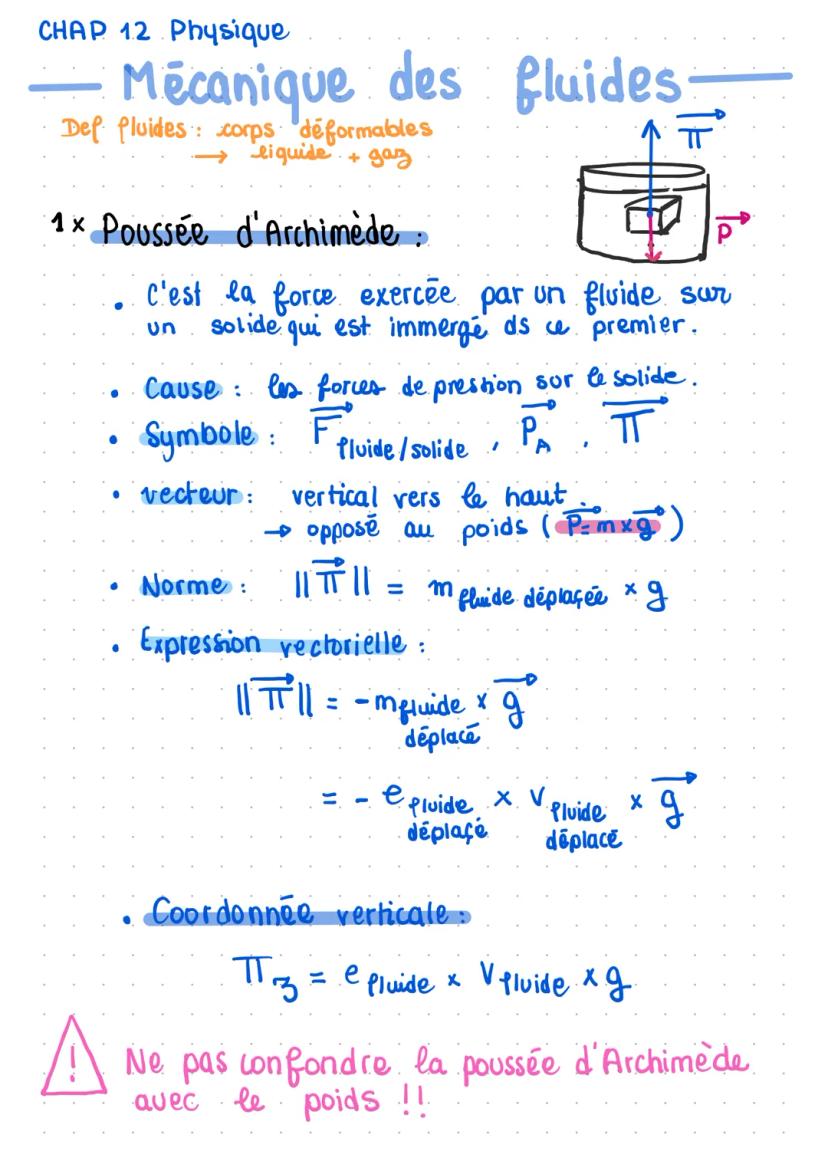 CHAP 12 Physique
Mécanique des fluides
Def fluides : corps déformables
→ liquide + gaz
π⃗
P⃗
1x Poussée d'Archimède :
• C'est la force exercée par un fluide sur
un solide qui est immergé ds ce premier.
• Cause : les forces de pression sur le solide.
• Symbole : F⃗ fluide/solide , P⃗A , π⃗
• vecteur : vertical vers le haut.
→ opposé au poids ( P⃗ = m x g⃗ )
• Norme : ||π⃗|| = m fluide déplaçée x g
• Expression vectorielle :
||π⃗|| = - m fluide déplacé x g⃗
= - e fluide déplaçé x V fluide déplacé x g⃗
• Coordonnée verticale :
π z = e fluide x V fluide x g
! Ne pas confondre la poussée d'Archimède
avec le poids !!